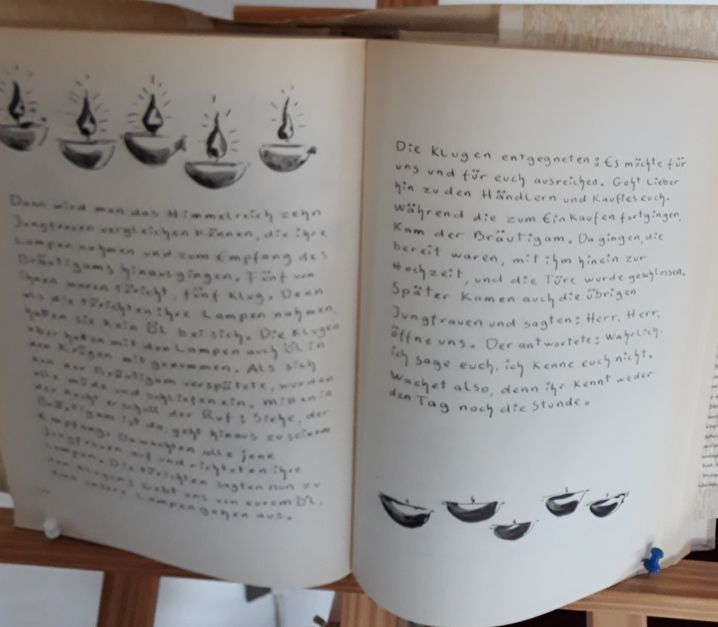 Dann wird man das Himmelreich zehn
Jungfrauen vergleichen können, die ihre
Lampen nahmen und zum Empfang des
Bräutigams hinausgingen. Fünf von
ihnen waren töricht, fünf klug. Denn
als die törichten ihre Lampen nahmen,
hatten sie kein Öl bei sich. Die Klugen
aber hatten mit den Lampen auch Öl in
den Krügen mit genommen. Als sich
nun der Bräutigam verspätete, wurden
alle müde und schliefen ein. Mitten in
der nacht erscholl der Ruf: Siehe, der
Bräutigam ist da, geht hinaus zu seinem
Empfang. Da machten alle jene
Jungfrauen auf und richteten ihre
Lampen. Die törichten sagten nun zu
den klugen: Gebt uns von eurem Öl,
denn unsere Lampen gehen aus.
Die Klugen entgegneten: Es möchte für
uns und für euch ausreichen. Geht lieber
hin zu den Händlern und kauft es euch.
Während die zum Einkaufen fortgingen,
kam der Bräutigam. Da gingen, die
bereit waren, mit ihm hinein zur
Hochzeit, und die Türe wurde geschlossen.
Später kamen auch die übrigen
Jungfrauen und sagten: Herr, Herr,
öffne uns. Der antwortete: Wahrlich,
ich sage euch, ich kenne euch nicht.
Wachet also, denn ihr kennt weder
den Tag noch die Stunde.